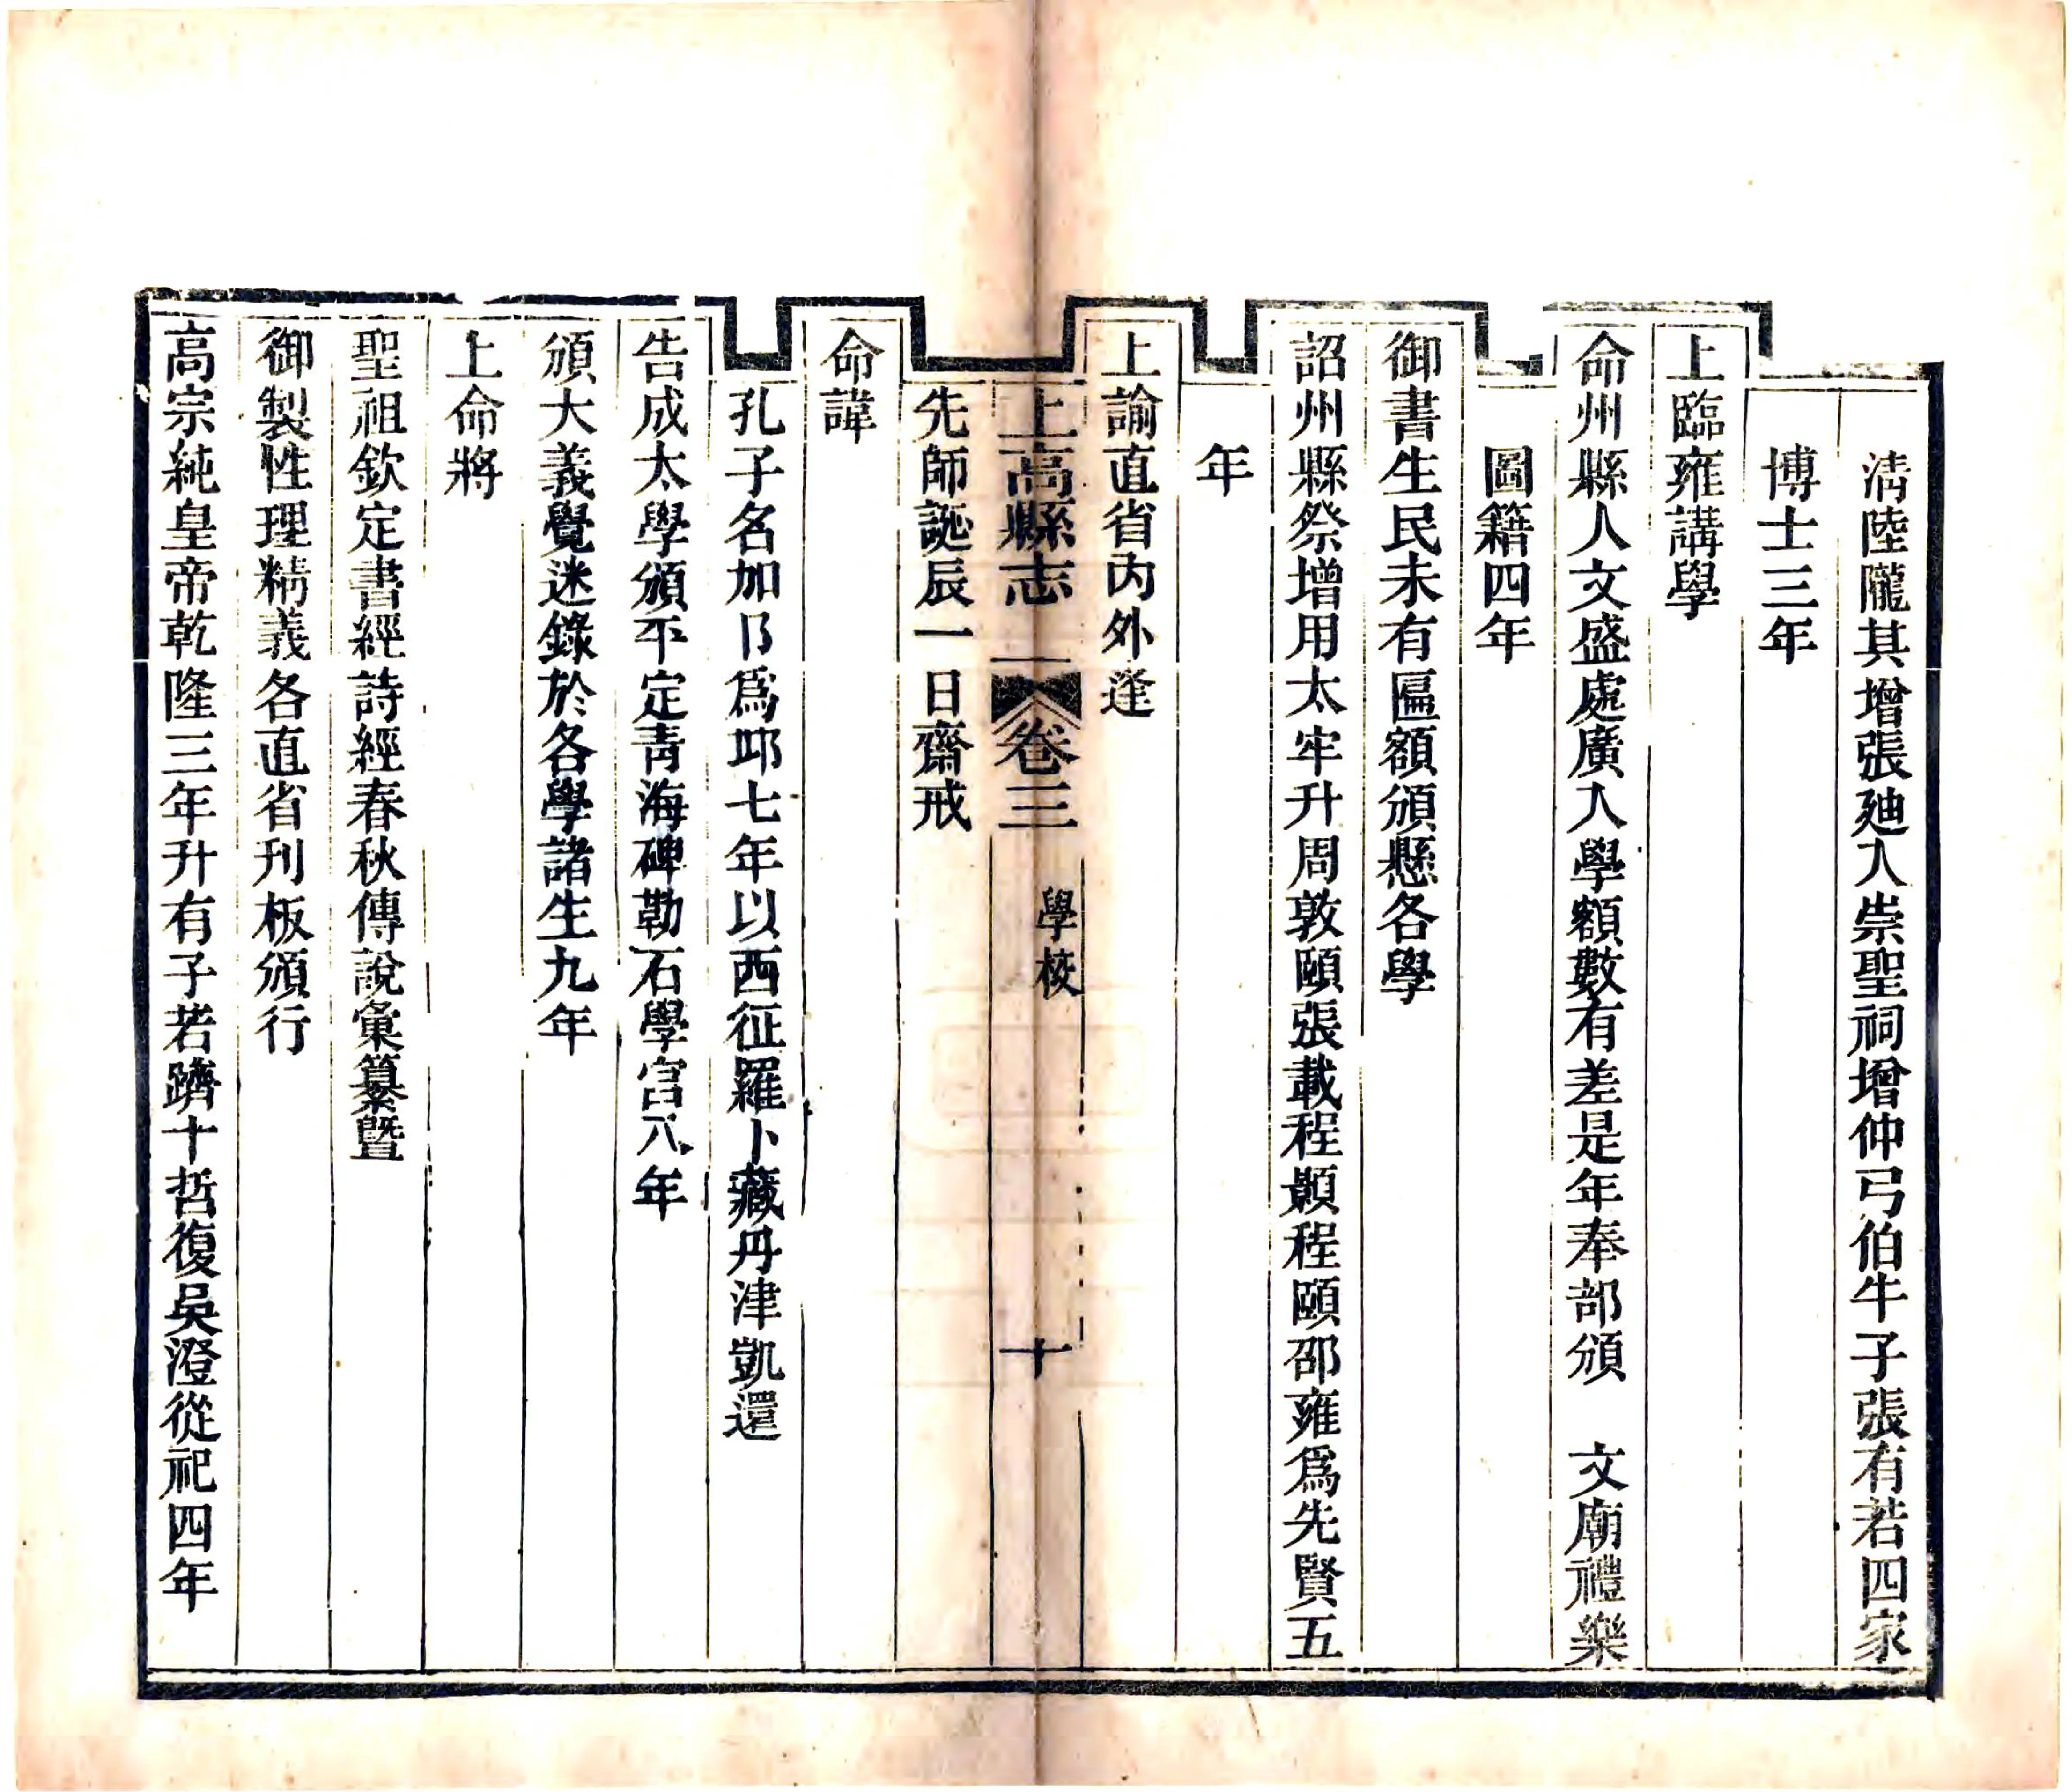 淸陸隴其增張廸入崇聖祠增仲弓伯牛子張有若四家
博士三年
上臨雍講學
命州縣人文盛處廣入學額數有差是年奉部頒　文廟禮樂
圖籍四年
御書生民未有匾額頒懸各學
詔州縣祭增用太牢升周敦頤張載程顥程頤邵雍爲先賢五
年
上諭直省內外逢
上高縣志　卷三　學校　十
先師誕辰一日齋戒
命諱
孔子名加阝爲邱七年以西征羅卜藏丹津凱還
告成太學頒平定青海碑勒石學宮八年
頒大義覺迷錄於各學諸生九年
上命將
聖祖欽定書經詩經春秋傳說彙纂暨
御製性理精義各直省刊板頒行
高宗純皇帝乾隆三年升有子若躋十哲復吳澄從祀四年